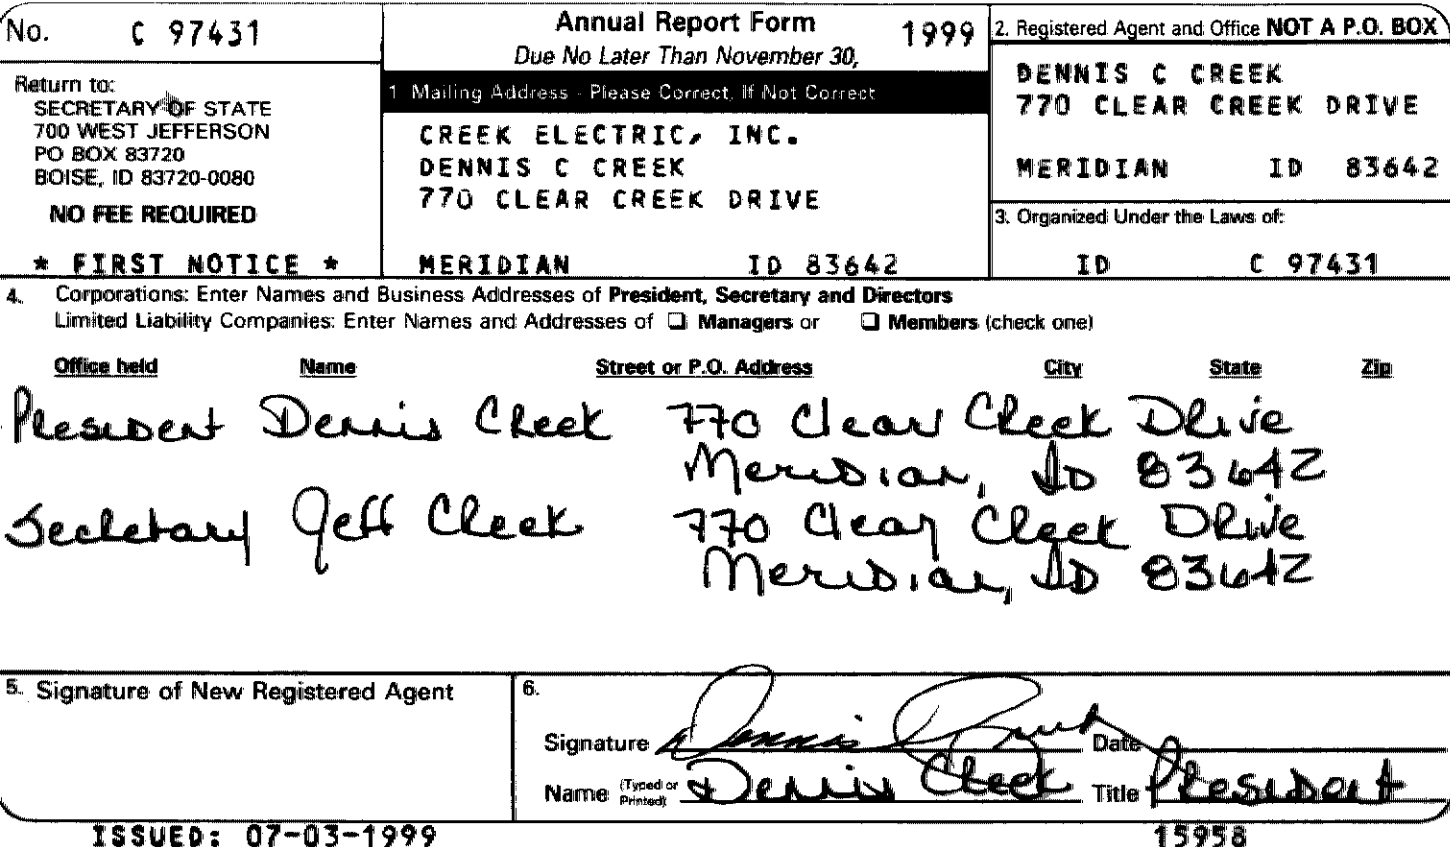 No. C 97431
Annual Report Form 1999
Due No Later Than November 30,
Return to:
SECRETARY OF STATE
700 WEST JEFFERSON
PO BOX 83720
BOISE, ID 83720-0080
NO FEE REQUIRED
* FIRST NOTICE *
1 Mailing Address - Please Correct, If Not Correct
CREEK ELECTRIC, INC.
DENNIS C CREEK
770 CLEAR CREEK DRIVE
MERIDIAN ID 83642
2. Registered Agent and Office NOT A P.O. BOX
DENNIS C CREEK
770 CLEAR CREEK DRIVE
MERIDIAN ID 83642
3. Organized Under the Laws of:
ID C 97431
4. Corporations: Enter Names and Business Addresses of President, Secretary and Directors
Limited Liability Companies: Enter Names and Addresses of ❑ Managers or ❑ Members (check one)
Office held Name Street or P.O. Address City State Zip
President Dennis Creek 770 Clear Creek Drive
Meridian, ID 83642
Secretary Jeff Creek 770 Clear Creek Drive
Meridian, ID 83642
5. Signature of New Registered Agent
6.
Signature Dennis Creek Date
Name (Typed or Printed) Dennis Creek Title President
ISSUED: 07-03-1999
15958